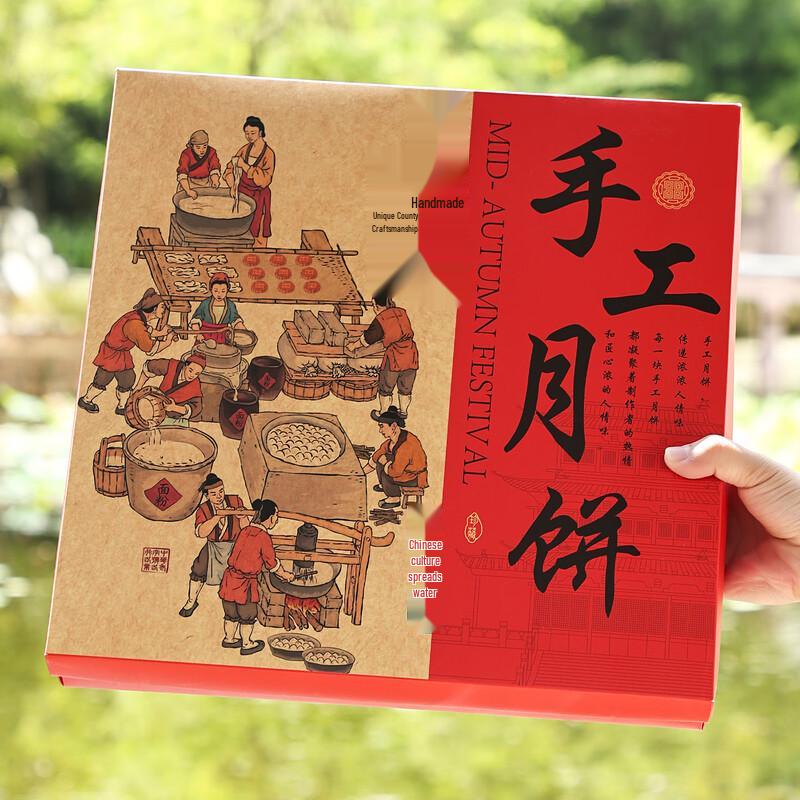 Handmade
Unique County
Craftsmanship
MID- AUTUMN FESTIVAL
手工月饼
手工月饼
传递浓浓人情味
每一块手工月饼
都凝聚着制作者的热情
和匠心浓的人情味
面粉
Chinese
culture
spreads
water